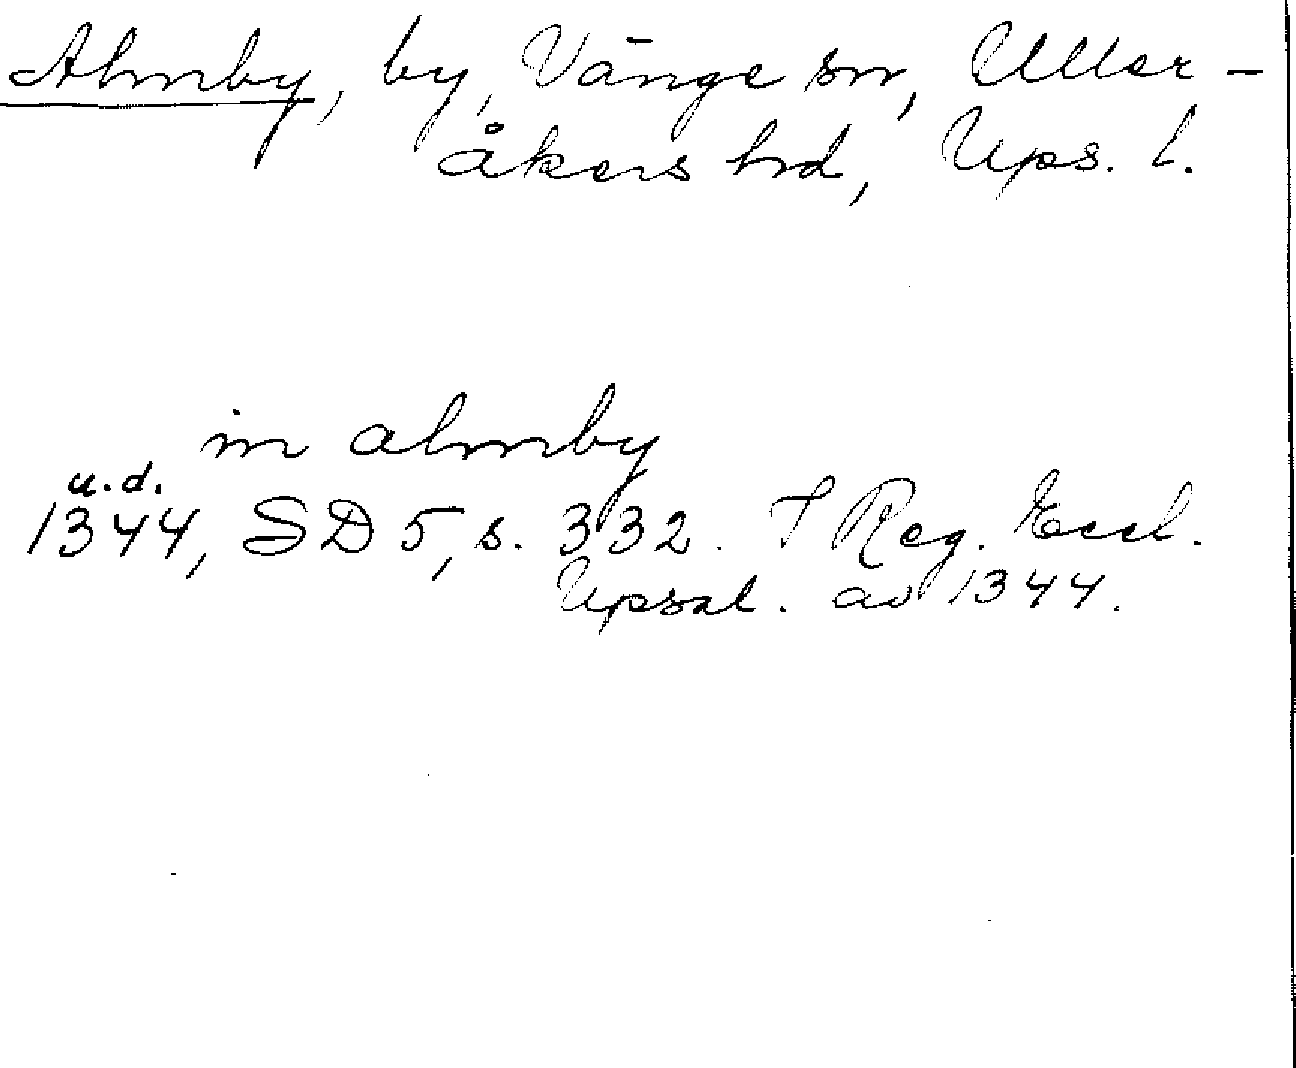 Almby, by, Vänge sn, Uller-
åkers hd, Ups. l.
in almby
u.d.
1344, SD 5, s. 332. I Reg. Eccl.
Upsal. av 1344.